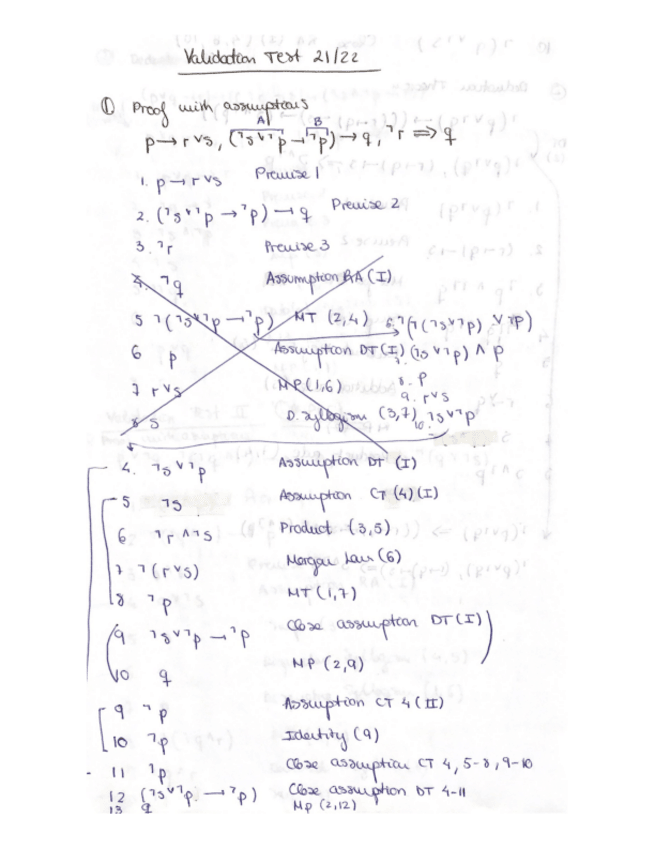 Validation Test 21/22
① Proof with assumptions
A B
p → r ∨ s, (¬s ∨ ¬p → ¬p) → q, ¬r ⟹ q
1. p → r ∨ s Premise 1
2. (¬s ∨ ¬p → ¬p) → q Premise 2
3. ¬r Premise 3
4. ¬q Assumption RA (I)
5 ¬(¬s ∨ ¬p → ¬p) MT (2,4) 6. ¬(¬(¬s ∨ ¬p) ∨ ¬p)
6 p Assumption DT(I) 7. (¬s ∨ ¬p) ∧ p
8. p
7 r ∨ s MP(1,6) 9. r ∨ s
8 s D. syllogism (3,7) 10. ¬s ∨ ¬p
4. ¬s ∨ ¬p Assumption DT (I)
5 ¬s Assumption CT (4)(I)
6 ¬r ∧ ¬s Product (3,5)
7 ¬(r ∨ s) Morgan Law (6)
8 ¬p MT (1,7)
(9 ¬s ∨ ¬p → ¬p Close assumption DT(I)
10 q MP (2,9))
9 ¬p Assumption CT 4 (II)
10 ¬p Identity (9)
11 ¬p Close assumption CT 4, 5-8, 9-10
12 (¬s ∨ ¬p → ¬p) Close assumption DT 4-11
13 q MP (2,12)